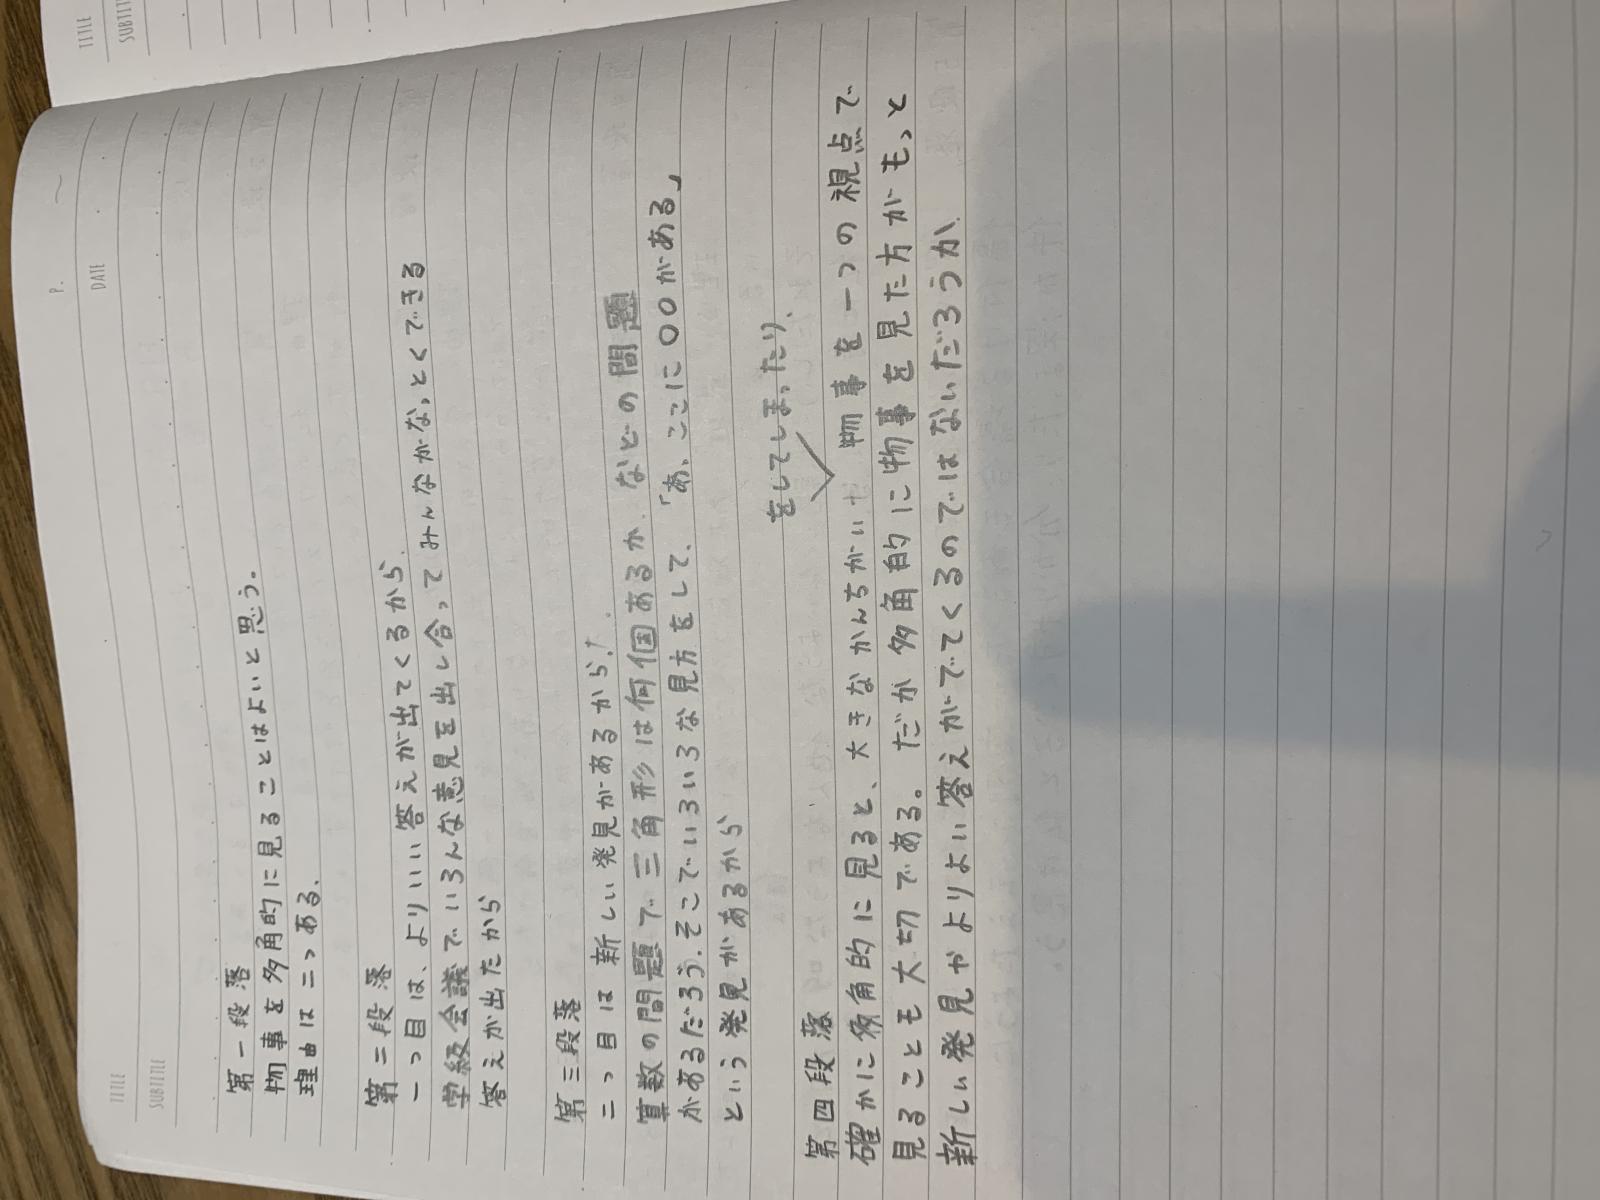 TITLE
SUBTITLE
P.
DATE
TITLE
SUBTITLE
第一段落
物事を多角的に見ることはよいと思う。
理由は二つある.
第二段落
一つ目は、よりいい答えが出てくるから.
学級会議でいろんな意見を出し合ってみんながなっとくできる
答えが出たから
第三段落
二つ目は新しい発見があるから!.
算数の問題で三角形は何個あるか.などの問題
があるだろう.そこでいろいろな見方をして、「あ、ここに〇〇がある」
という発見があるから
第四段落
をしてしまったり、
確かに多角的に見ると、大きなかんちがい 物事を一つの視点で
見ることも大切である。だが多角的に物事を見た方がもっと
新しい発見やよりよい答えがでてくるのではないだろうか.